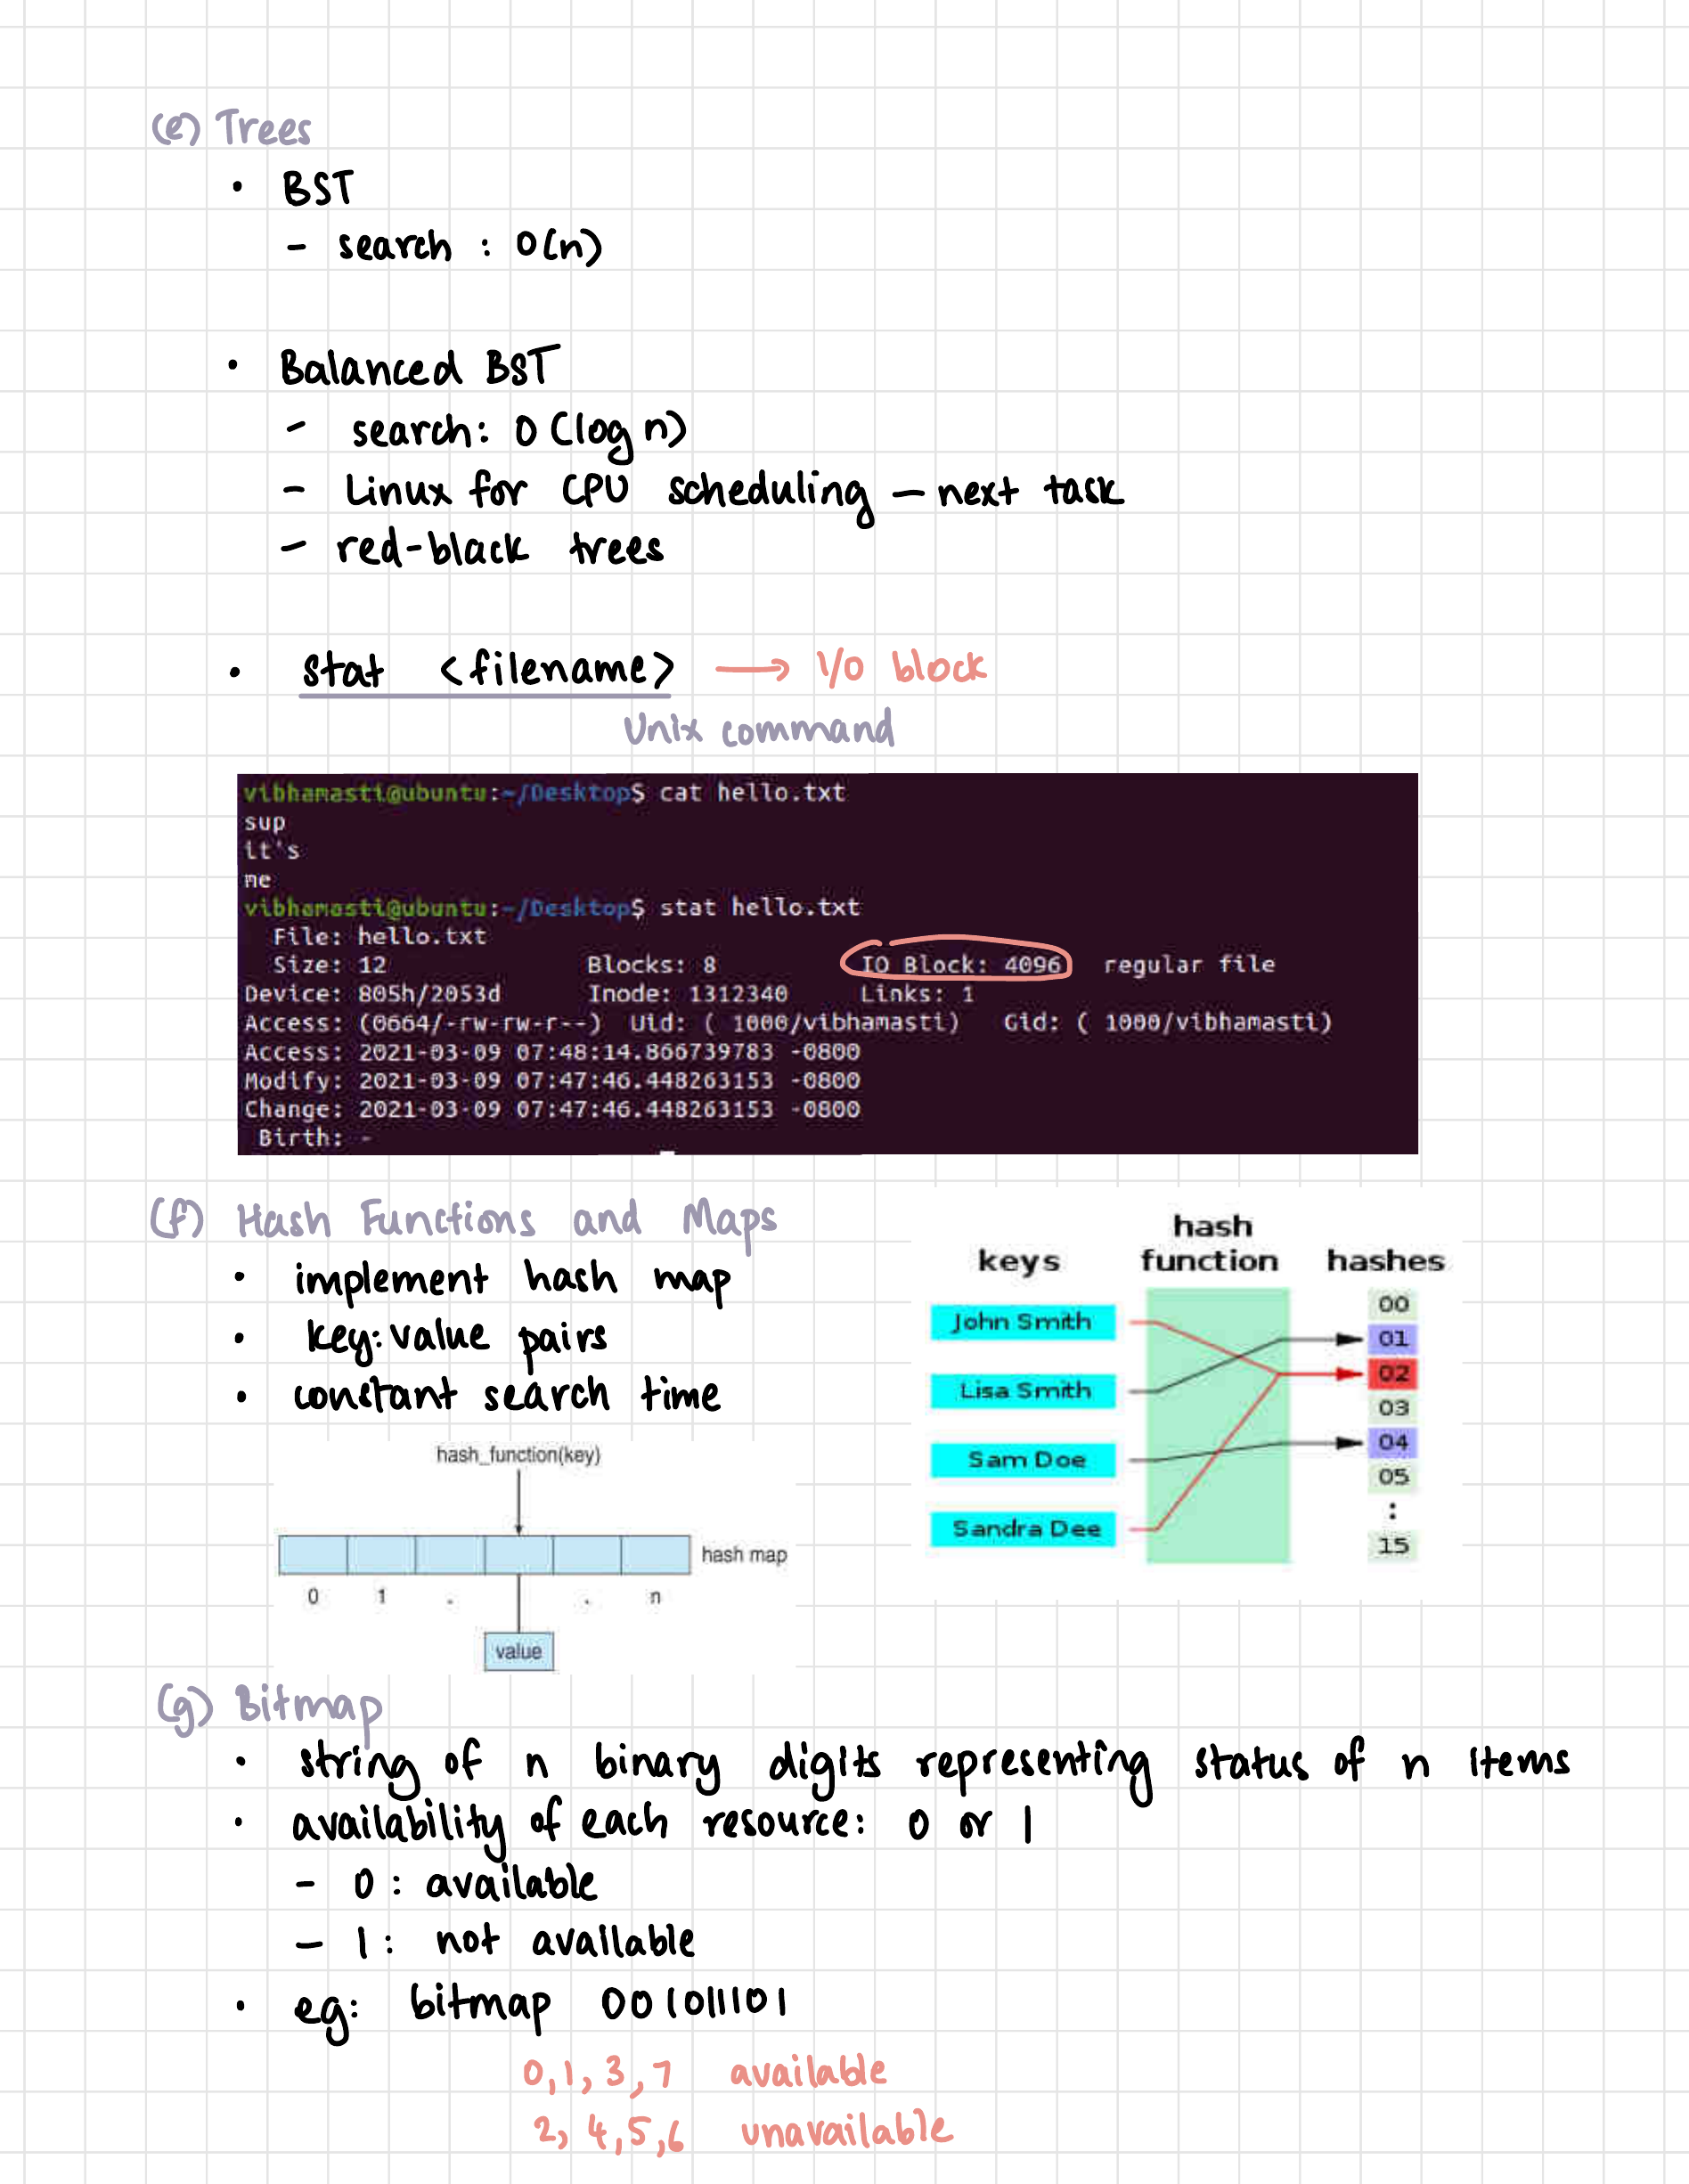 (e) Trees
• BST
- search : O(n)
• Balanced BST
- search: O(log n)
- Linux for CPU scheduling – next task
- red-black trees
• stat <filename> → I/O block
Unix command
vibhamasti@ubuntu:~/Desktop$ cat hello.txt
sup
it's
me
vibhamasti@ubuntu:~/Desktop$ stat hello.txt
File: hello.txt
Size: 12 Blocks: 8 IO Block: 4096 regular file
Device: 805h/2053d Inode: 1312340 Links: 1
Access: (0664/-rw-rw-r--) Uid: ( 1000/vibhamasti) Gid: ( 1000/vibhamasti)
Access: 2021-03-09 07:48:14.866739783 -0800
Modify: 2021-03-09 07:47:46.448263153 -0800
Change: 2021-03-09 07:47:46.448263153 -0800
Birth: -
(f) Hash Functions and Maps
• implement hash map
• key:value pairs
• constant search time
hash_function(key)
hash map
0 1 . . n
value
hash
keys function hashes
John Smith
Lisa Smith
Sam Doe
Sandra Dee
00
01
02
03
04
05
:
15
(g) Bitmap
• string of n binary digits representing status of n items
• availability of each resource: 0 or 1
- 0 : available
- 1 : not available
• eg: bitmap 001011101
0, 1, 3, 7 available
2, 4, 5, 6 unavailable